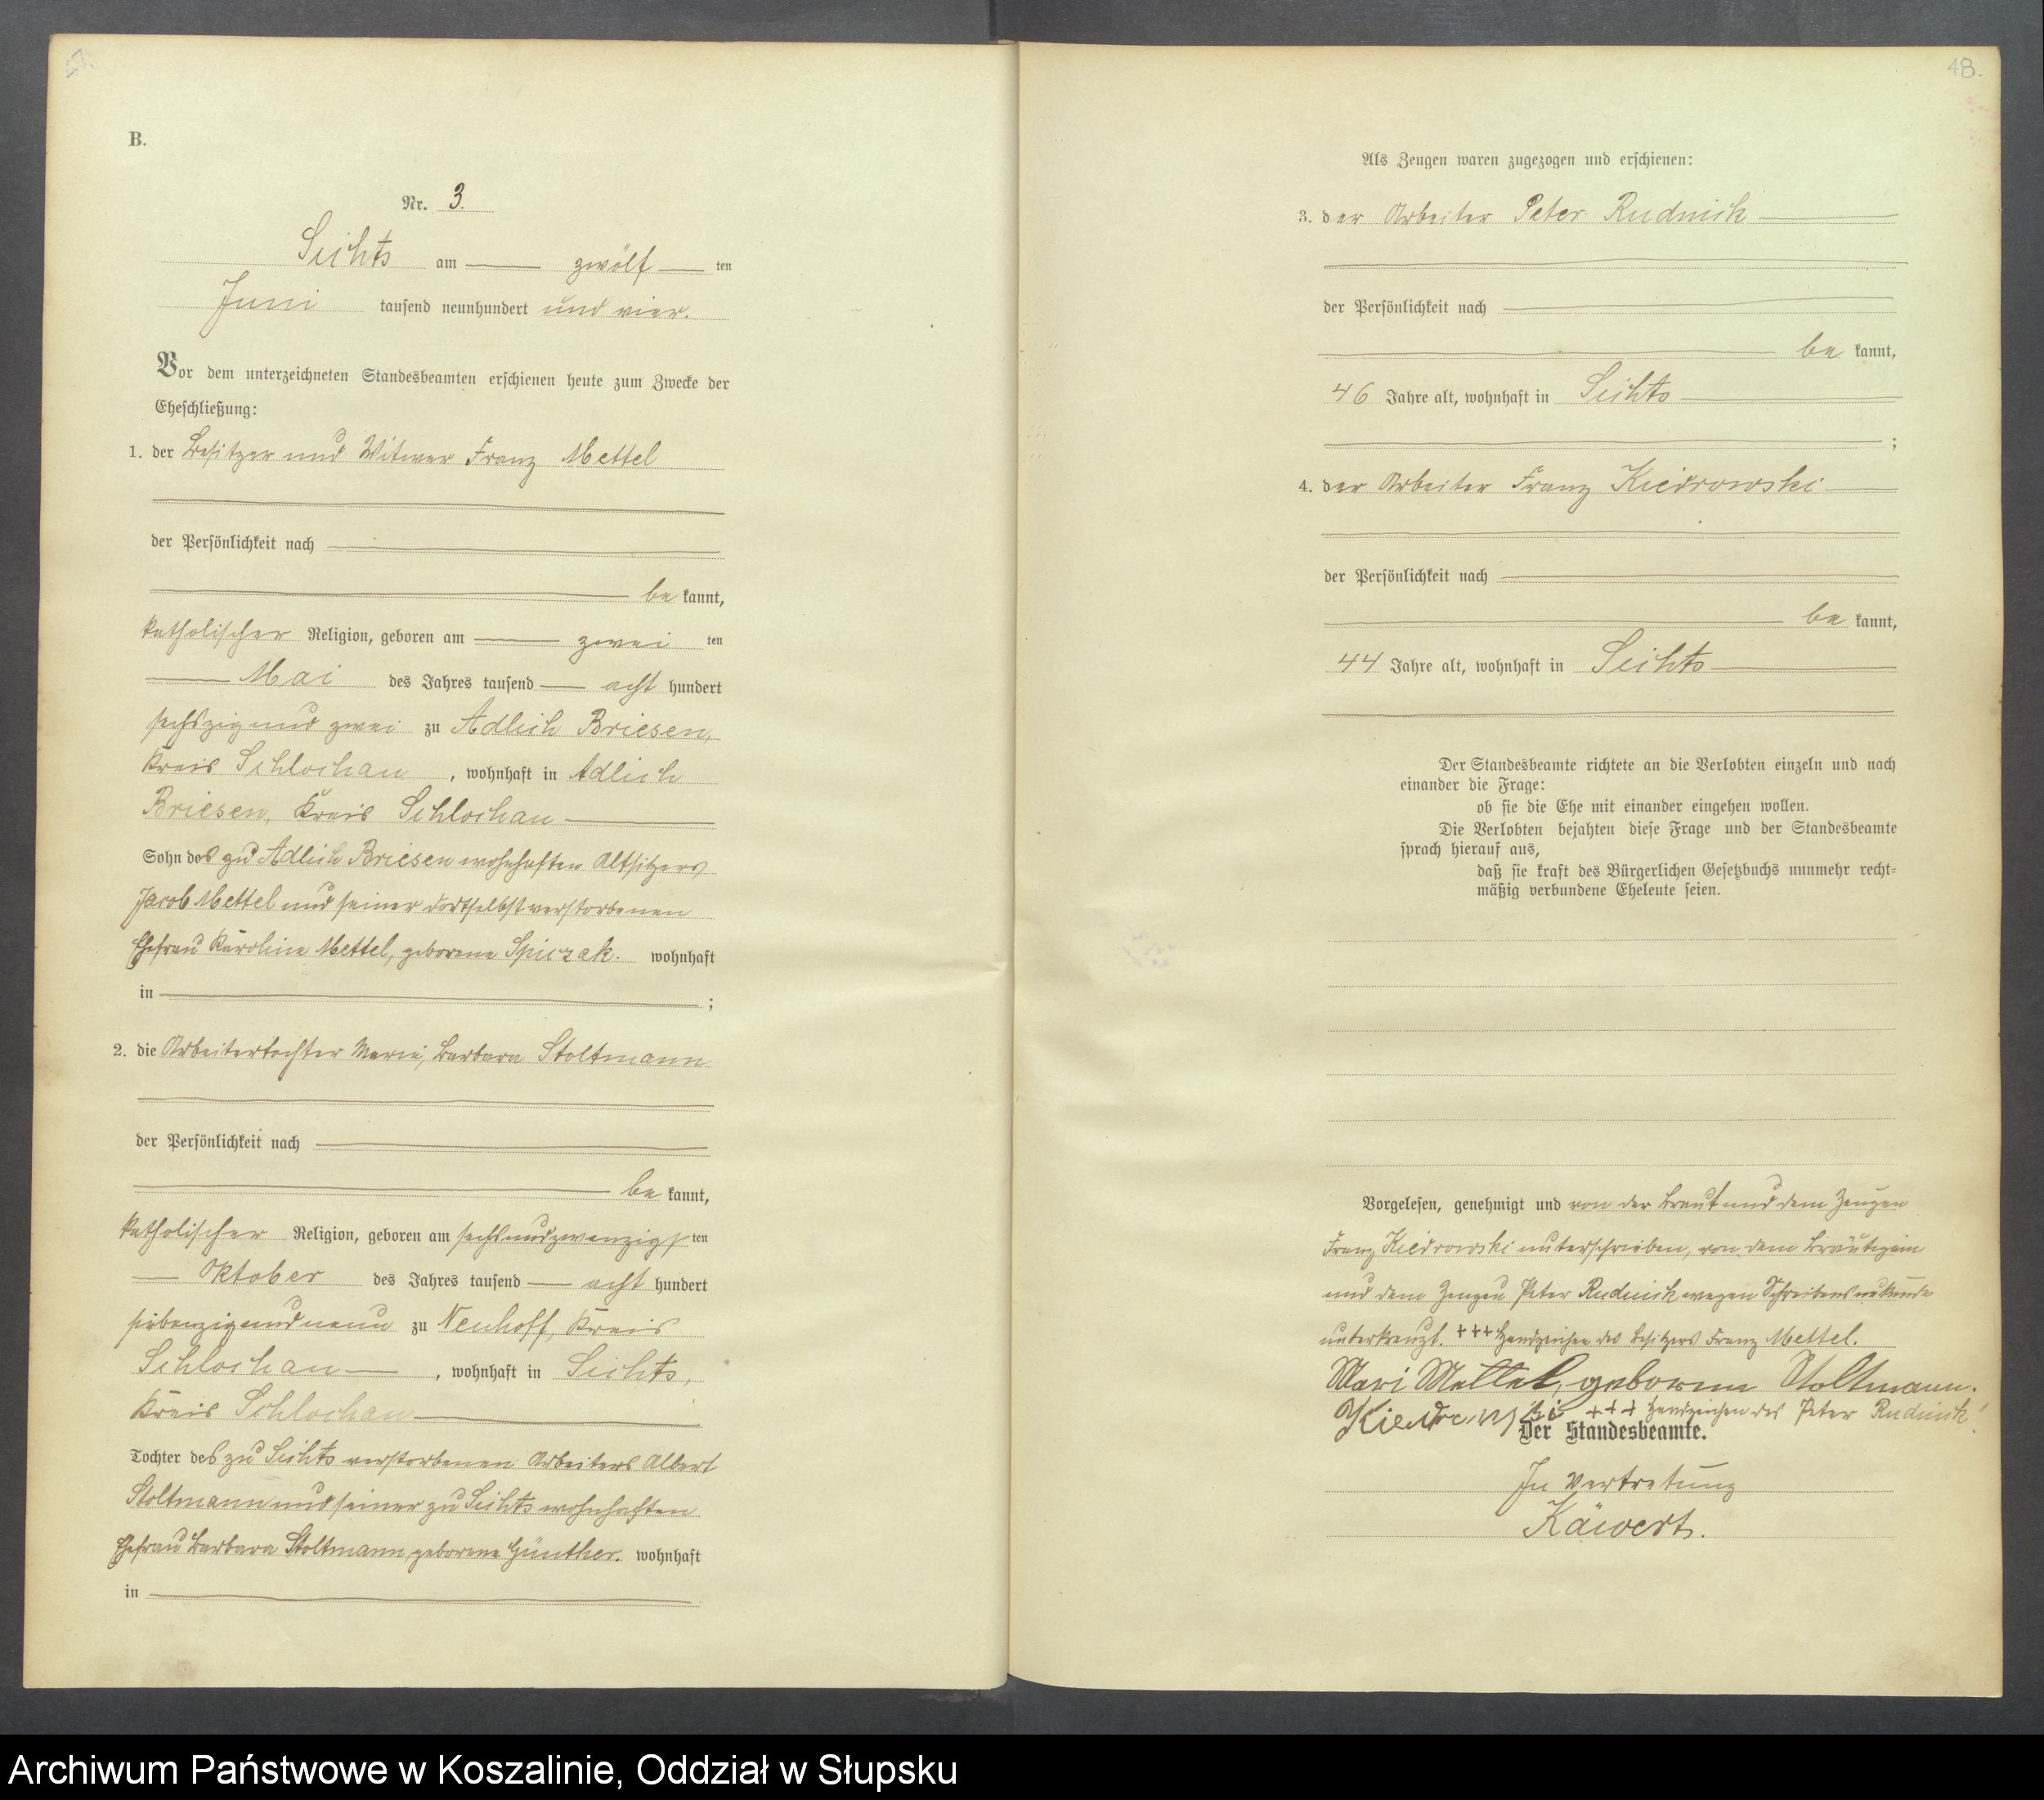 B.
Nr. 3.
Sichts am zwölf ten
Juni tausend neunhundert und vier.
Vor dem unterzeichneten Standesbeamten erschienen heute zum Zwecke der
Eheschließung:
1. der Besitzer und Witwer Franz Mettel
der Persönlichkeit nach
be kannt,
katholischer Religion, geboren am zwei ten
Mai des Jahres tausend acht hundert
sechszig und zwei zu Adlich Briesen,
Kreis Schlochau, wohnhaft in Adlich
Briesen, Kreis Schlochau
Sohn des zu Adlich Briesen wohnhaften Altsitzers
Jacob Mettel und seiner dortselbst verstorbenen
Ehefrau Karoline Mettel, geborene Spiczak. wohnhaft
in ;
2. die Arbeitertochter Marie, Barbara Stoltmann
der Persönlichkeit nach
be kannt,
katholischer Religion, geboren am sechsundzwanzigs ten
Oktober des Jahres tausend acht hundert
siebenzig und neun zu Neuhoff, Kreis
Schlochau, wohnhaft in Sichts,
Kreis Schlochau
Tochter des zu Sichts verstorbenen Arbeiters Albert
Stoltmann und seiner zu Sichts wohnhaften
Ehefrau Barbara Stoltmann, geborene Günther. wohnhaft
in
48.
Als Zeugen waren zugezogen und erschienen:
3. der Arbeiter Peter Rudnick
der Persönlichkeit nach
be kannt,
46 Jahre alt, wohnhaft in Sichts
;
4. der Arbeiter Franz Kiedrowski
der Persönlichkeit nach
be kannt,
44 Jahre alt, wohnhaft in Sichts
Der Standesbeamte richtete an die Verlobten einzeln und nach
einander die Frage:
ob sie die Ehe mit einander eingehen wollen.
Die Verlobten bejahten diese Frage und der Standesbeamte
sprach hierauf aus,
daß sie kraft des Bürgerlichen Gesetzbuchs nunmehr recht-
mäßig verbundene Eheleute seien.
Vorgelesen, genehmigt und von der Braut und dem Zeugen
Franz Kiedrowski unterschrieben, von dem Bräutigam
und dem Zeugen Peter Rudnick wegen Schreibensunkunde
unterkreuzt. +++ Handzeichen des Besitzers Franz Mettel.
Mari Mettel, geborene Stoltmann.
Kiedrowski +++ Handzeichen des Peter Rudnick.
Der Standesbeamte.
In Vertretung
Käwert.
Archiwum Państwowe w Koszalinie, Oddział w Słupsku